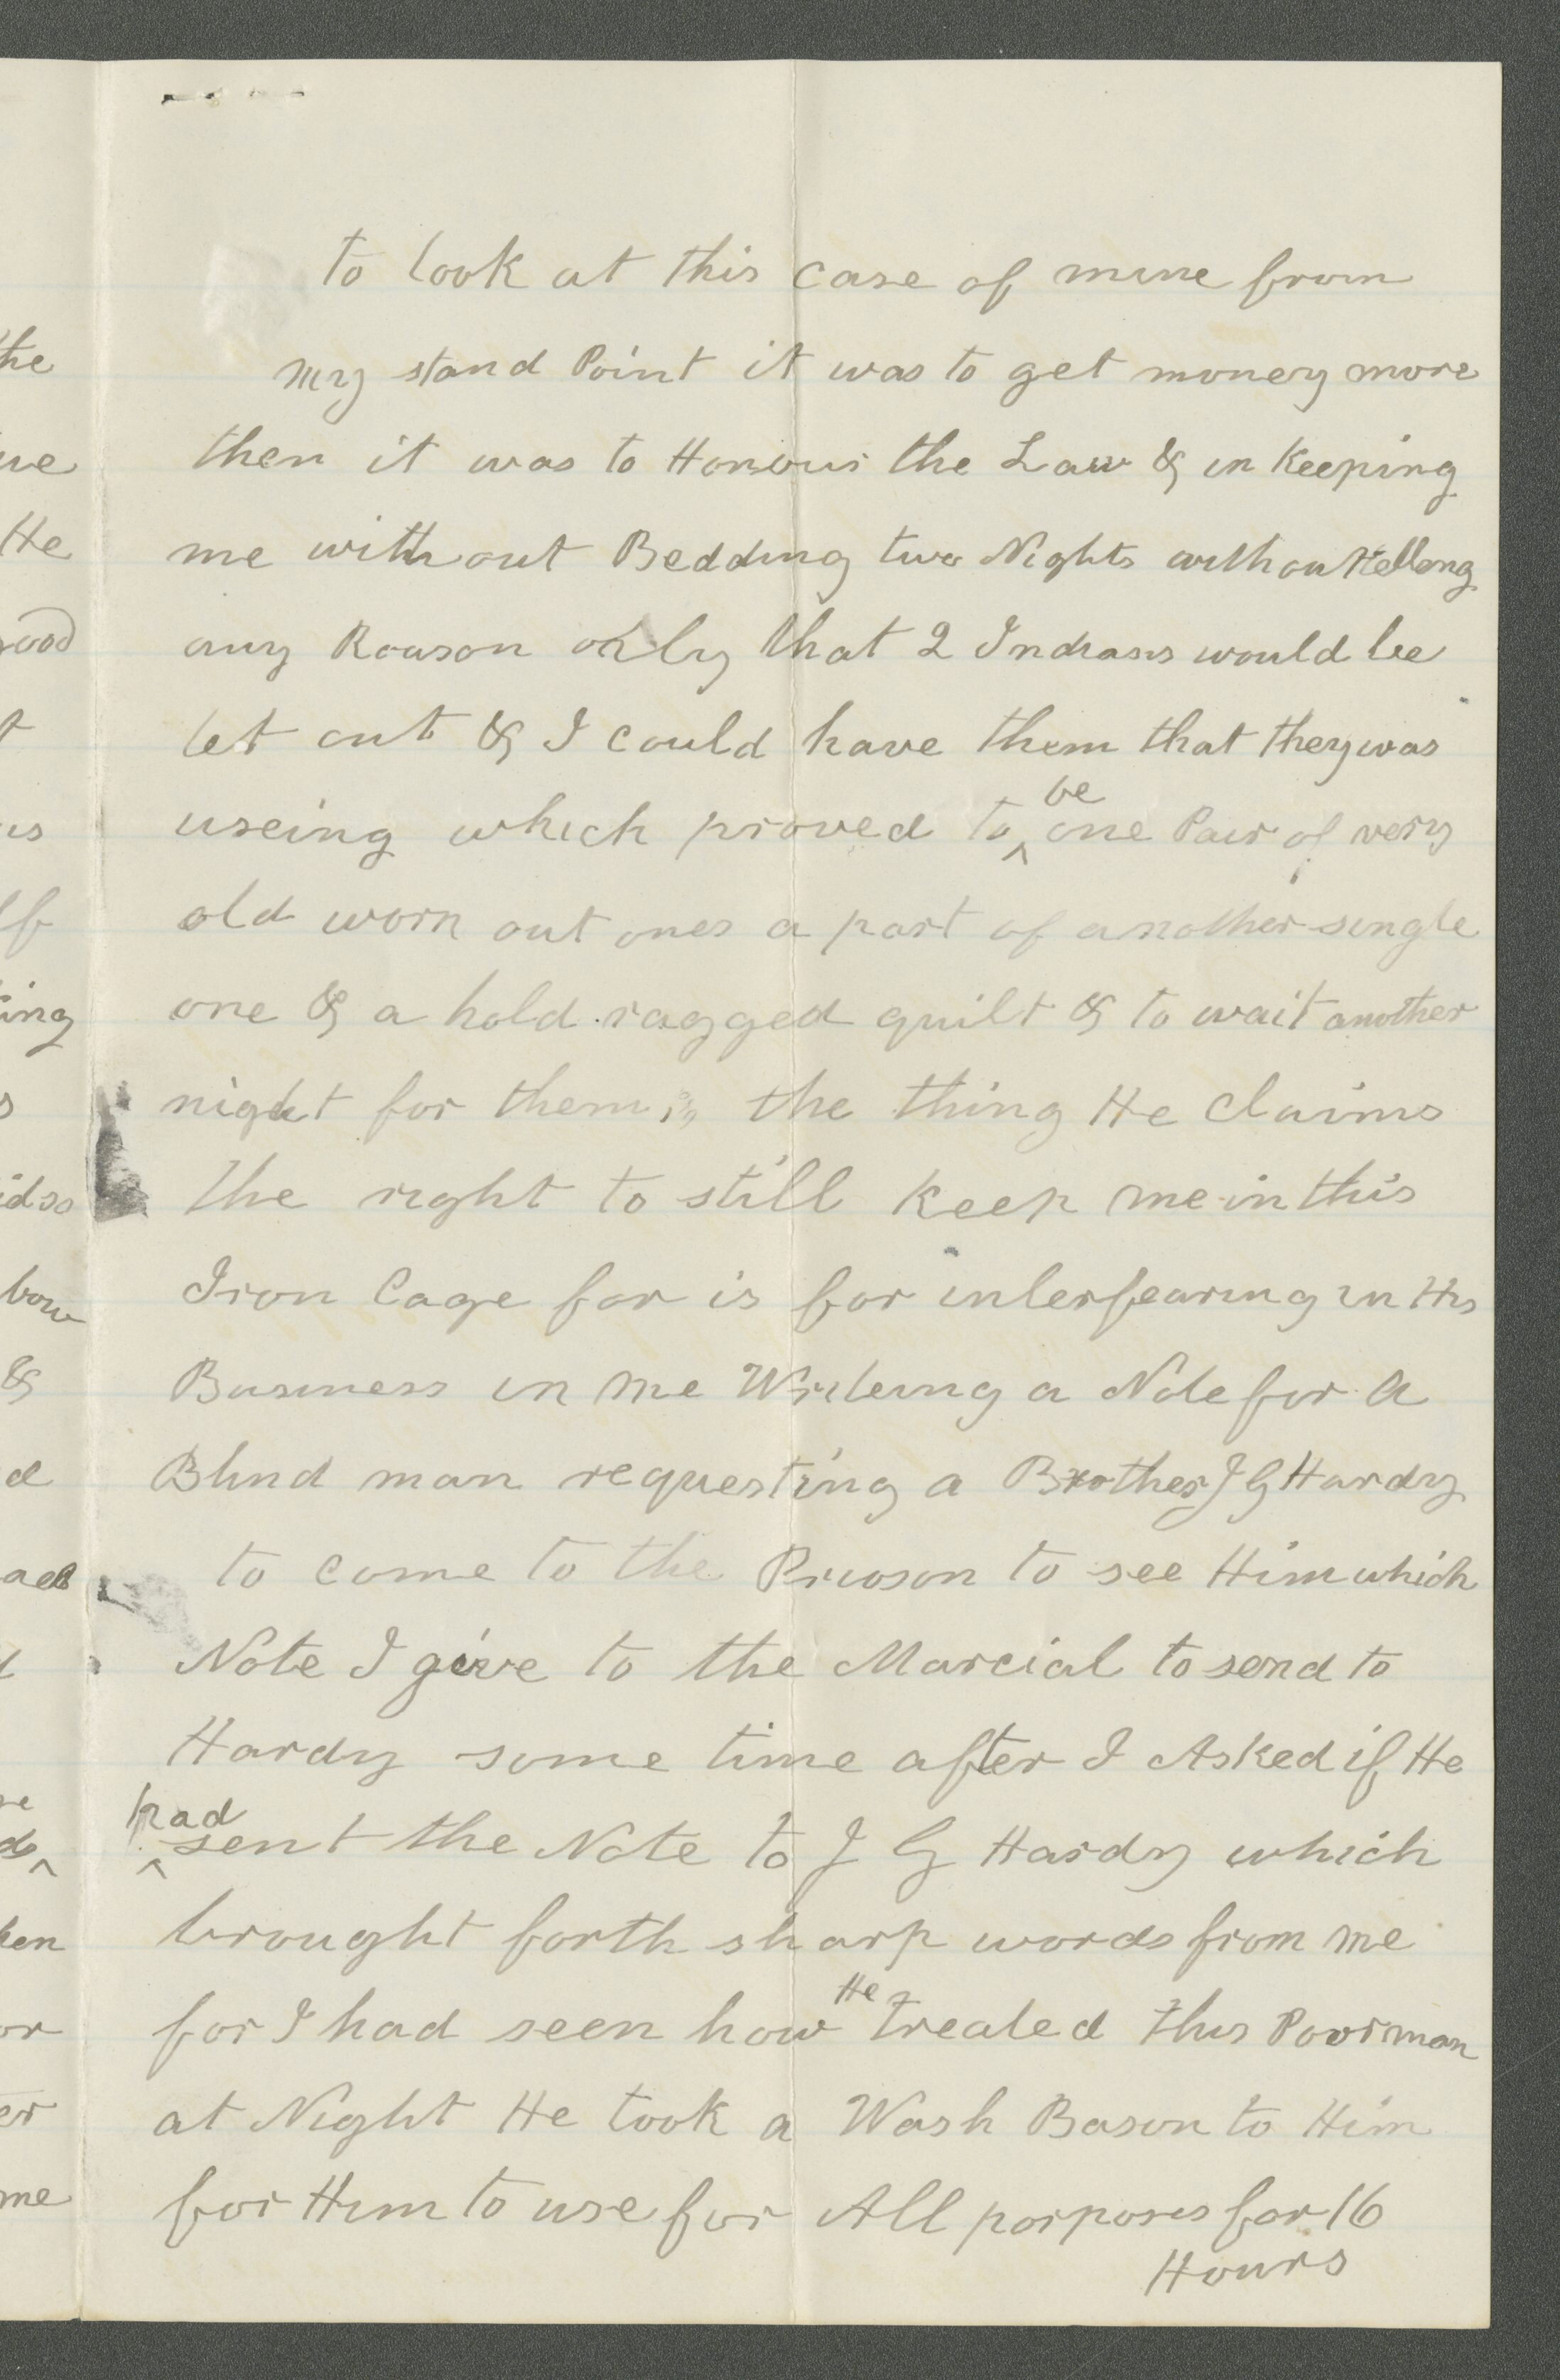 to look at this case of mine from
my stand Point it was to get money more
then it was to Honour the Law & in Keeping
me without Bedding two Nights without telling
any Reason only that 2 Indians would be
let out & I could have them that they was
useing which proved to be one Pair of very
old worn out ones a part of another single
one & a hold ragged quilt & to wait another
night for them the thing He claims
the right to still Keep me in this
Iron Cage for is for interfearing in His
Business in me Writeing a Note for a
Blind man requesting a Brother J G Hardy
to come to the Prison to see Him which
Note I give to the Marcial to send to
Hardy some time after I Asked if He
had sent the Note to J G Hardy which
brought forth sharp words from me
for I had seen how He treated this Poor man
at Night He took a Wash Bason to Him
for Him to use for All porposes for 16
Hours
the
He
ood
t
us
ing
s
bow
&
d
d
or
er
me